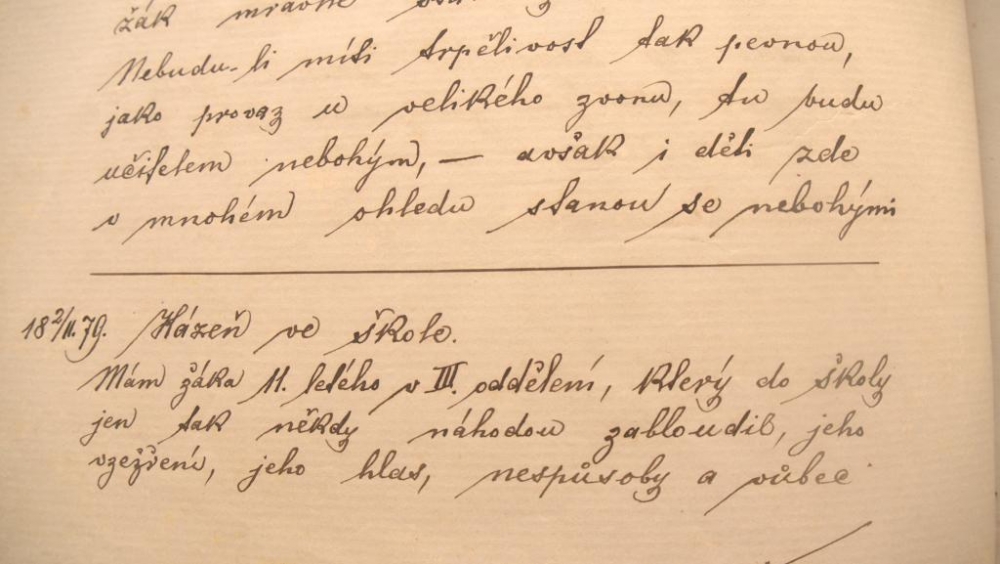 žák mravně
Nebudu-li míti trpělivost tak pevnou,
jako provaz u velikého zvonu, tu budu
učitelem nebohým, — avšak i děti zde
v mnohém ohledu stanou se nebohými
18 2/II. 79. Kázeň ve škole.
Mám žáka 11. letého v III. oddělení, který do školy
jen tak někdy náhodou zabloudil, jeho
vzezření, jeho hlas, nespůsoby a vůbec